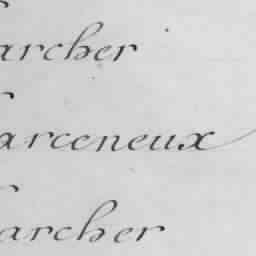 archer
arceneux
archer